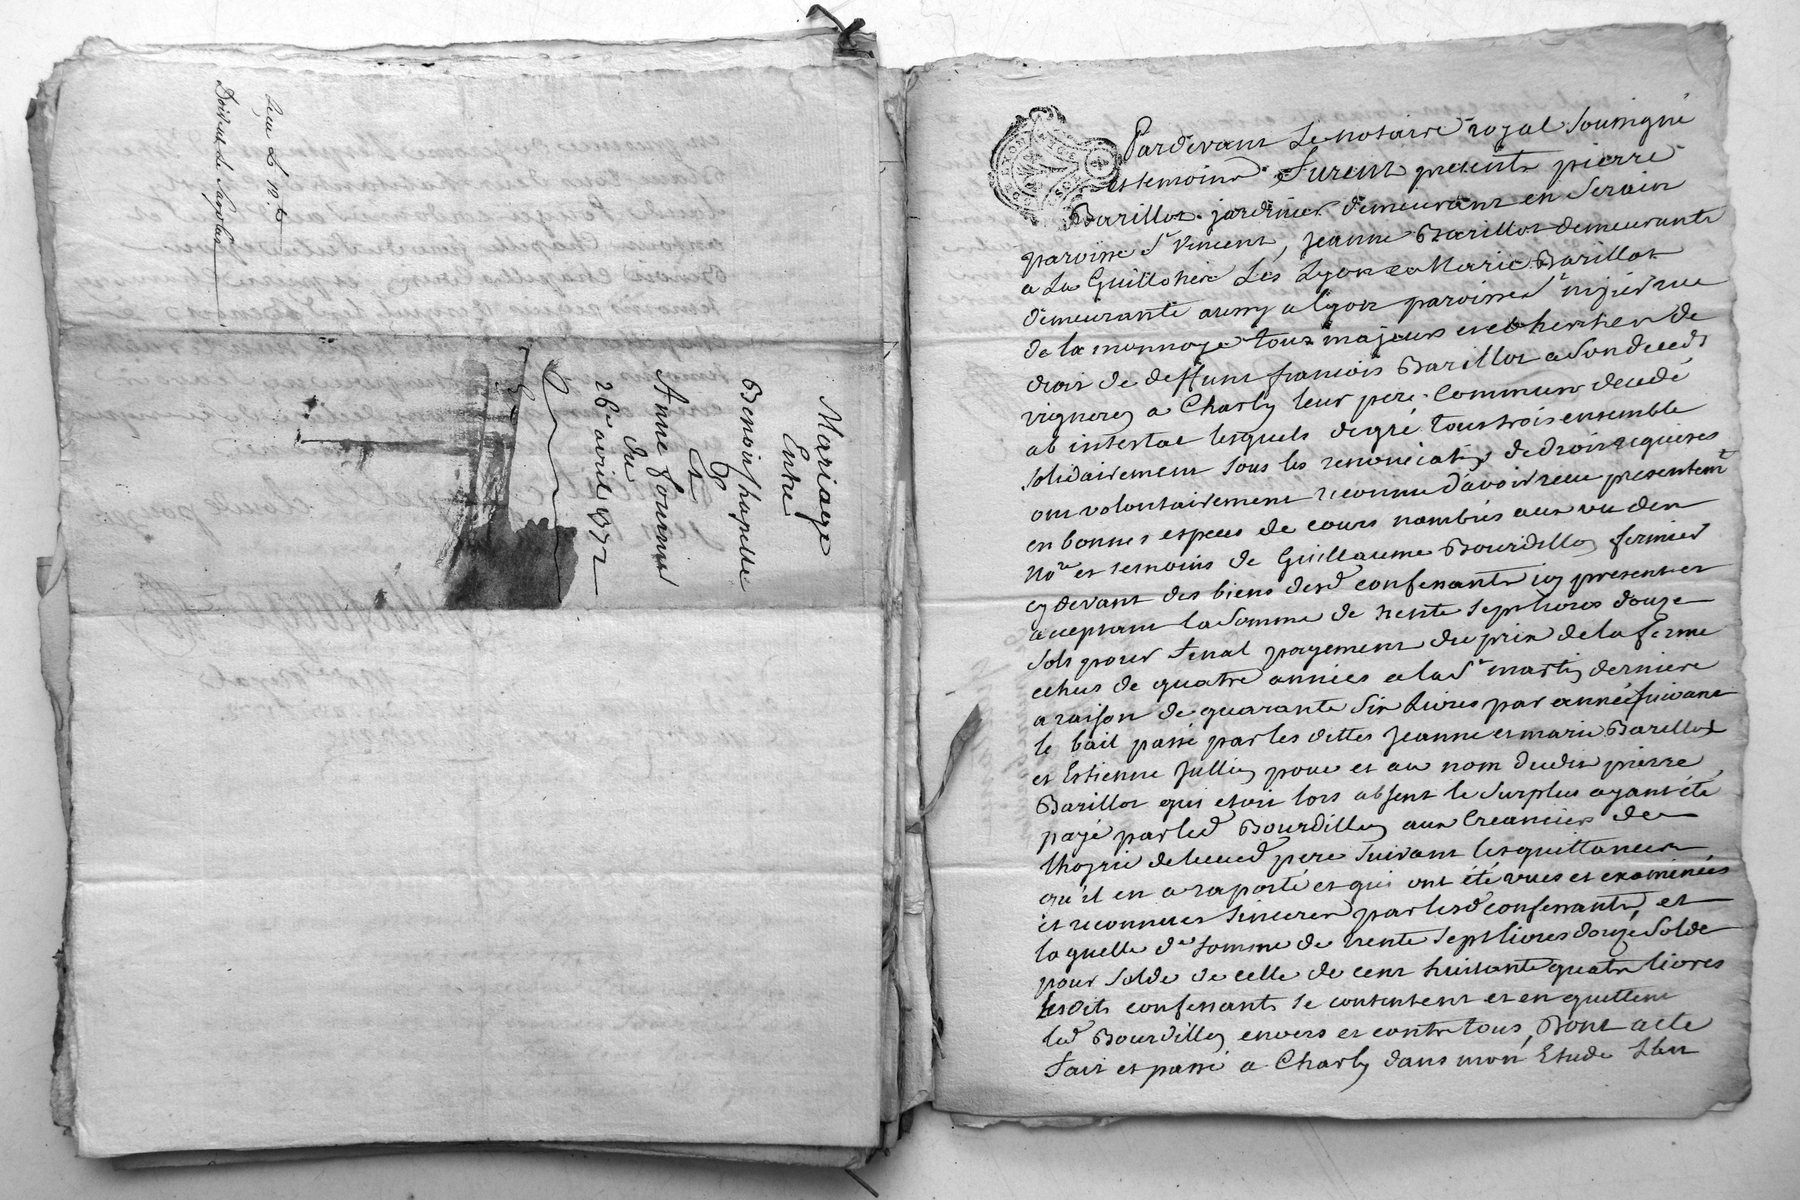 Mariage
Entre
Benoit Chapelle
Et
Anne fournier
du
26e avril 1772
Doit
Pardevant Le notaire royal Soussigné
et temoins furent presents pierre
Barillot jardinier demeurant en Serain
paroisse St Vincent, Jeanne Barillot demeurante
a La Guillotiere Les Lyon et Marie Barillot
demeurante aussy a lyon paroisse St nizier rue
de la monnoye tous majeurs et heritier de
droit de deffunt francois Barillot a Son deceds
vigneron a Charly leur pere commun decedé
ab intestat lesquels degré tous trois ensemble
Solidairement Sous les renonciations de droit requises
ont volontairement reconnu d'avoir receu presentemt
en bonnes especes de cours nombrés aux vu den
Nore et temoins de Guillaume Bourdillon fermier
cy devant des biens desd confessants icy present et
aceptant la Somme de trente Sept livres douze
Sols pour final payement du prix de la ferme
echus de quatre années a la St martin derniere
a raison de quarante Six Livres par année Suivant
le bail passé par les dittes Jeanne et marie Barillot
et Estienne Jullien pour et au nom dudit pierre
Barillot qui etoit lors absent le Surplus ayant été
payé par led Bourdillon aux Creanciers de
lhoyrie de leurd pere Suivant les quittances
qu'il en a raporté et qui ont été vues et examinées
et reconnues Sinceres par lesd confessants, et
laquelle de Somme de trente Sept livres douze Sols
pour Solde de celle de cent huitante quatre livres
Lesdits confessants Se contentent et en quittent
led Bourdillon envers et contre tous, Dont acte
fait et passé a Charly dans mon Etude